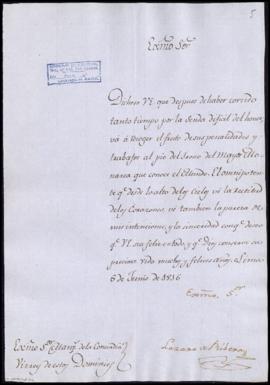 5
Exmo Sor
Dichoso VE. que despues de haber corrido
tanto tiempo por la senda dificil del honor,
vá á recoger el fruto de sus penalidades y
trabajos al pie del trono del Mayor Mo-
narca que conoce el Mundo. El omnipoten-
te qe. desde lo alto de los Cielos vé la rectitud
de los Corazones, vé tambien la pureza de
mis intenciones, y la sinceridad con qe. deseo
qe. VE. sea feliz
y qe. Dios conserve su
preciosa vida muchos y felices años. Lima
6 de Junio de 1816
Exmo. Sor.
Lazaro de Ribera
Exmo Sor Marqs. de la Concordia
Virrey de estos Dominios